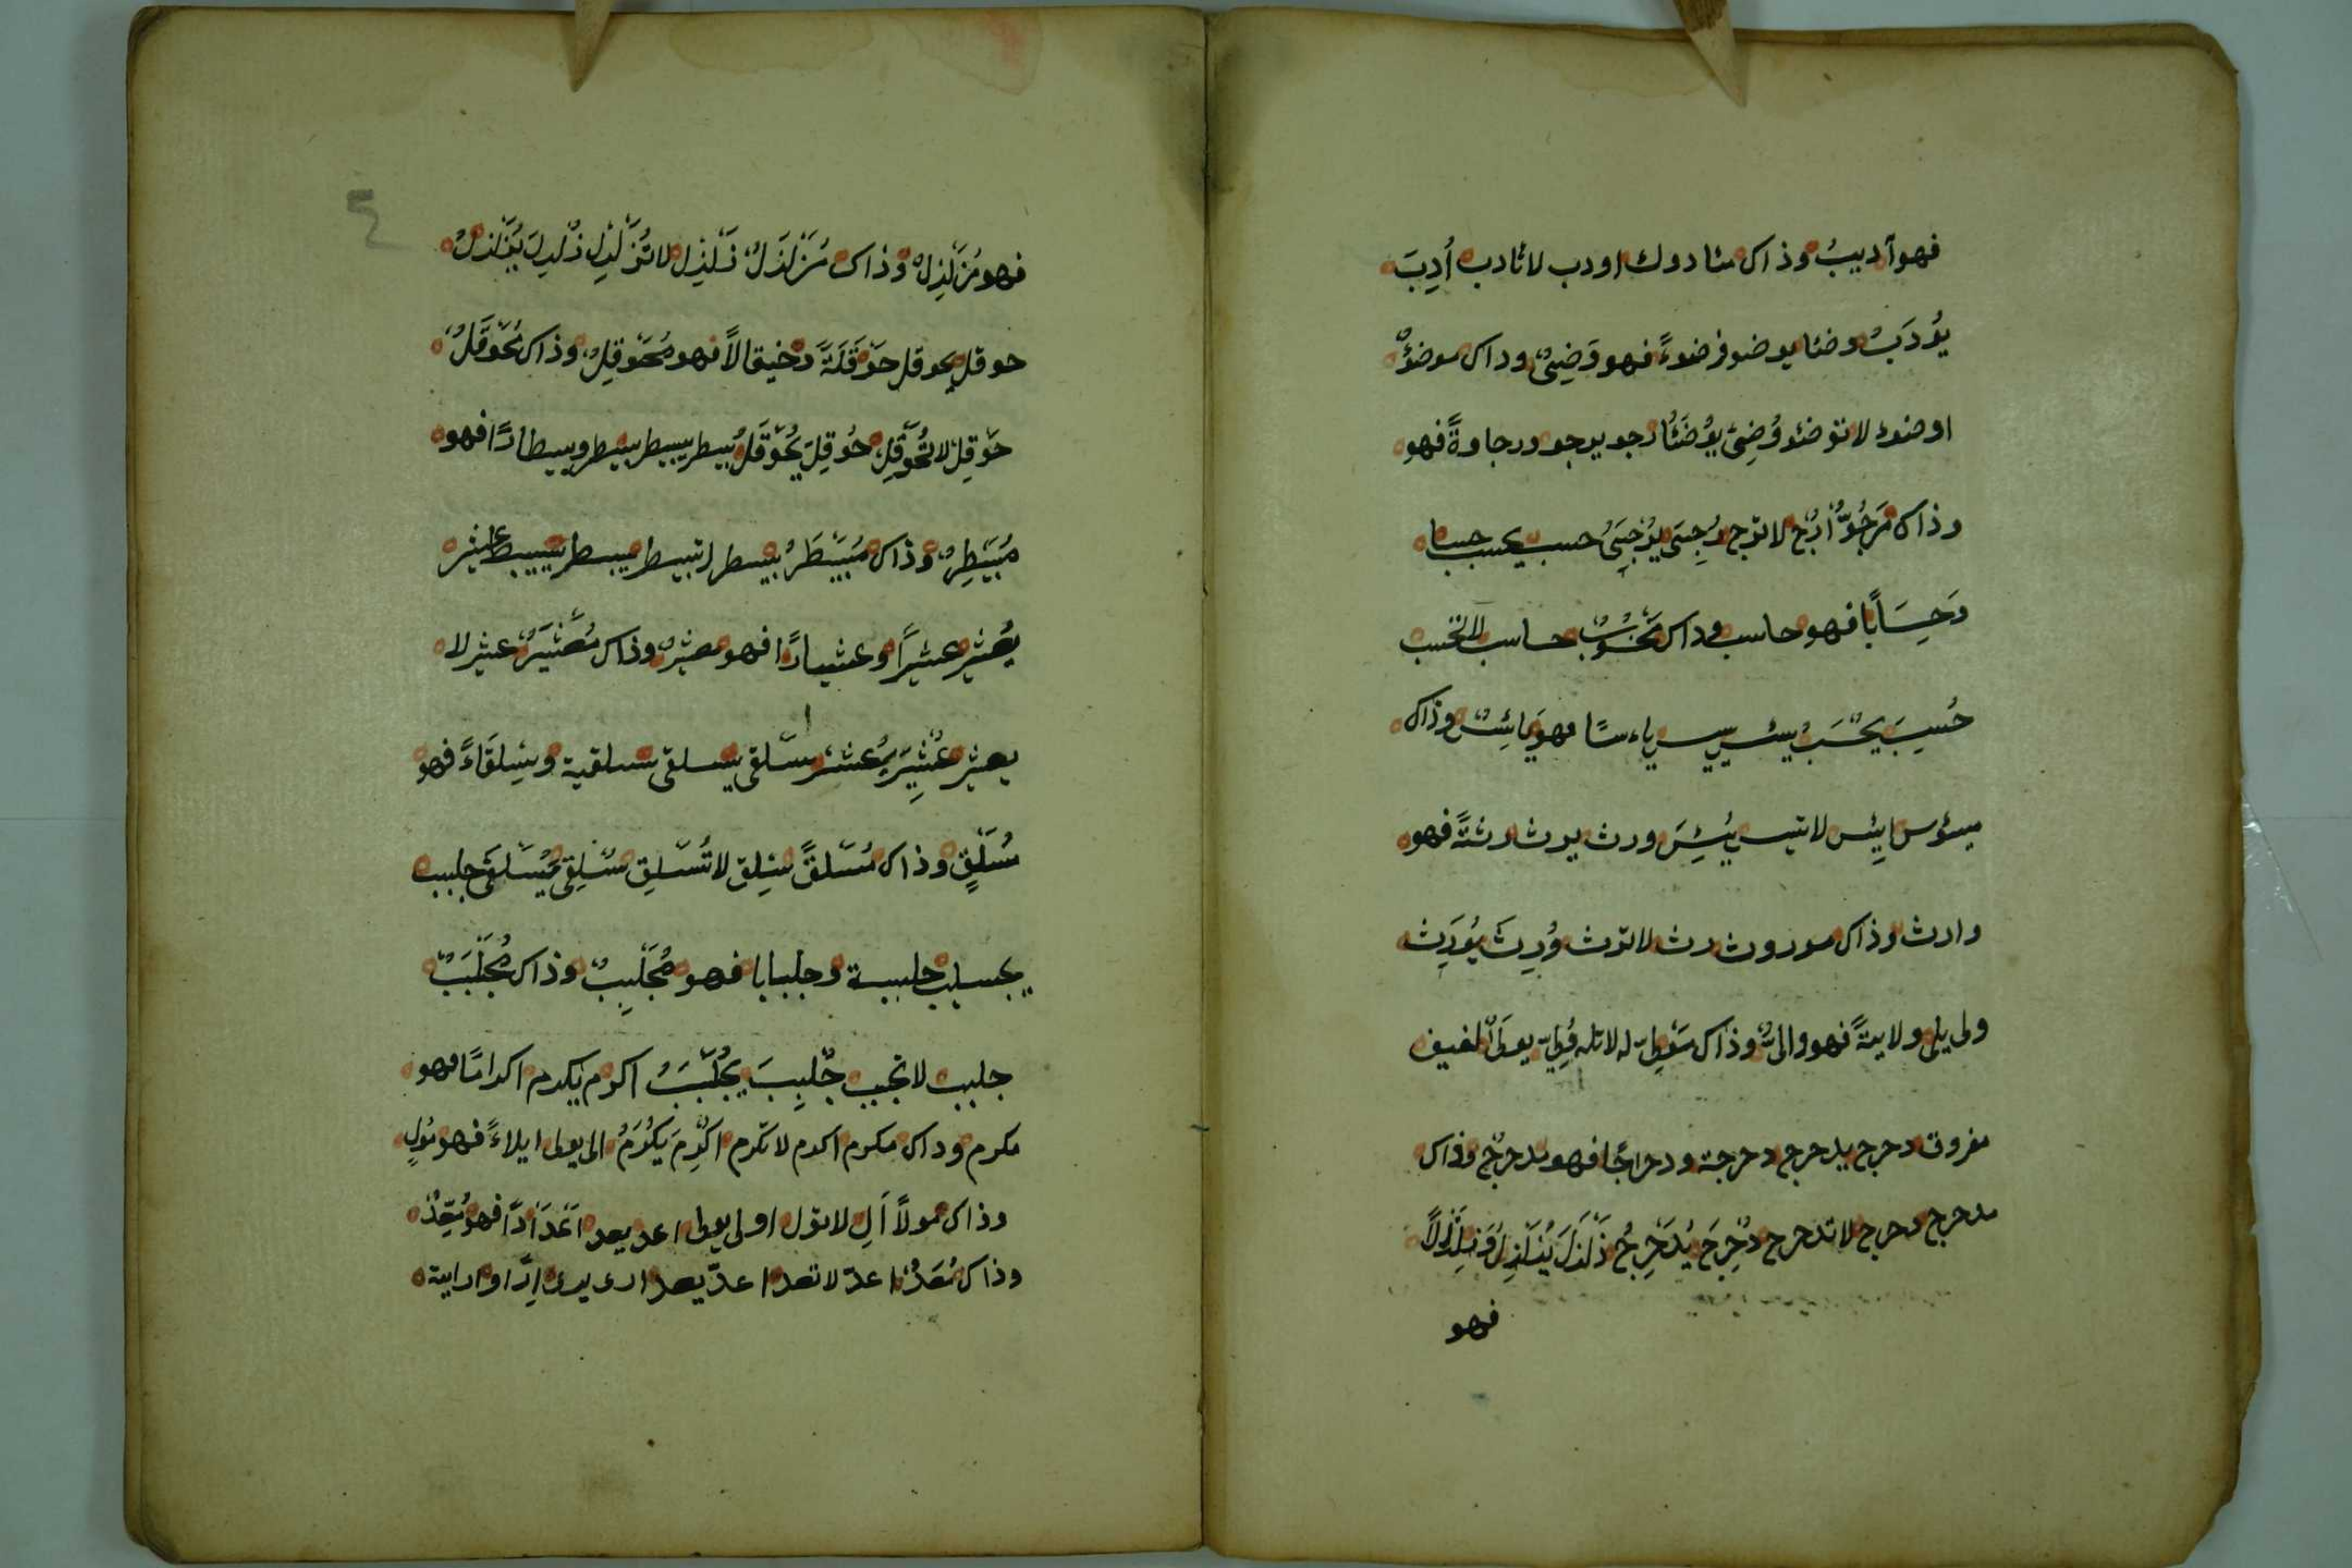 فهو آدیبُ وذاك مئادوك اودب لا تادب أُدِبَ
یُودَبُ وضئا یوضو فرضوءً فهو وَضِئٌ وداك موضوٌ
اوضوء لا توضئو وُضِئ یوُضَئُا رجو یرجو ورجاوةً فهو
وذاك مَرجُوٌّ اُرُج لا ترج رُجِیَ یُرجَیُ حسب یحسب حسبا
وَحِسَابًا فهو حاسب وداك مَحسُوبٌ حاسب لا تحسب
حُسِبَ یُحسَبُ یئس ییس یاءسًا فهو یَائِسٌ وذاك
میئوس ایِئس لا تیس یُئِسَ ورث یرث رثةً فهو
وارث وذاك موروث رث لا ترث وُرِثَ یُورَث
ولی یلی ولایةً فهو والیٌ وذاك مَولیٌ له لا تله وُلِیَ یولَی لفیف
مفروق دحرج یدحرج دحرجة ودحراجًا فهو مدحرج وذاك
مدحرج دحرج لا تدحرج دُحرِجَ یُدَحرَجُ زَلزَلَ یُزَلزِلُ وَزِلزَالاً
فهو
فهو مُزَلزِلٌ وذاك مُزَلزَلٌ زَلزِل لا تُزَلزِل زُلزِلَ یُزَلزَلُ
حوقل یحوقل حَوقَلَةً وحیقالاً فهو مُحَوقِلٌ وذاك مُحَوقَلٌ
حَوقِل لا تُحَوقِل حُوقِلَ یُحَوقَلُ بیطر یبیطر بیطر وبیطارًا فهو
مُبَیطِرٌ وذاك مُبَیطَرٌ بیطر لا تبیطر بیطر یبیطر عثیر
یُعثیر عثیرًا وعثیارًا فهو معثیرٌ وذاك مُعَثیَرٌ عثیر لا
یعثیر عُثیِرَ یُعثیَر سَلقی یسلقی سلقیة وسِلقَاءً فهو
مُسَلقٍ وذاك مُسَلقًی سَلِق لا تُسَلِق سُلقِی یُسَلقَی جلبب
یجلبب جلببة وجلبابا فهو مُجَلبِبٌ وذاك مُجَلبَبٌ
جلبب لا تجلبب جُلبِبَ یُجَلبَبُ اكرم یكرم اكرامًا فهو
مكرم وداك مكرم اكرم لا تكرم اُكرِمَ یُكرَمُ الی یولی ایلاءً فهو مُولٍ
وذاك مولاً اَلِ لا تول اولی یولی اعد یعد اَعَدَادًا فهو مُعِدٌّ
وذاك مُعَدٌّ اعدّ لا تعد اعدّ یعد اری یری اِرًا و ارایة